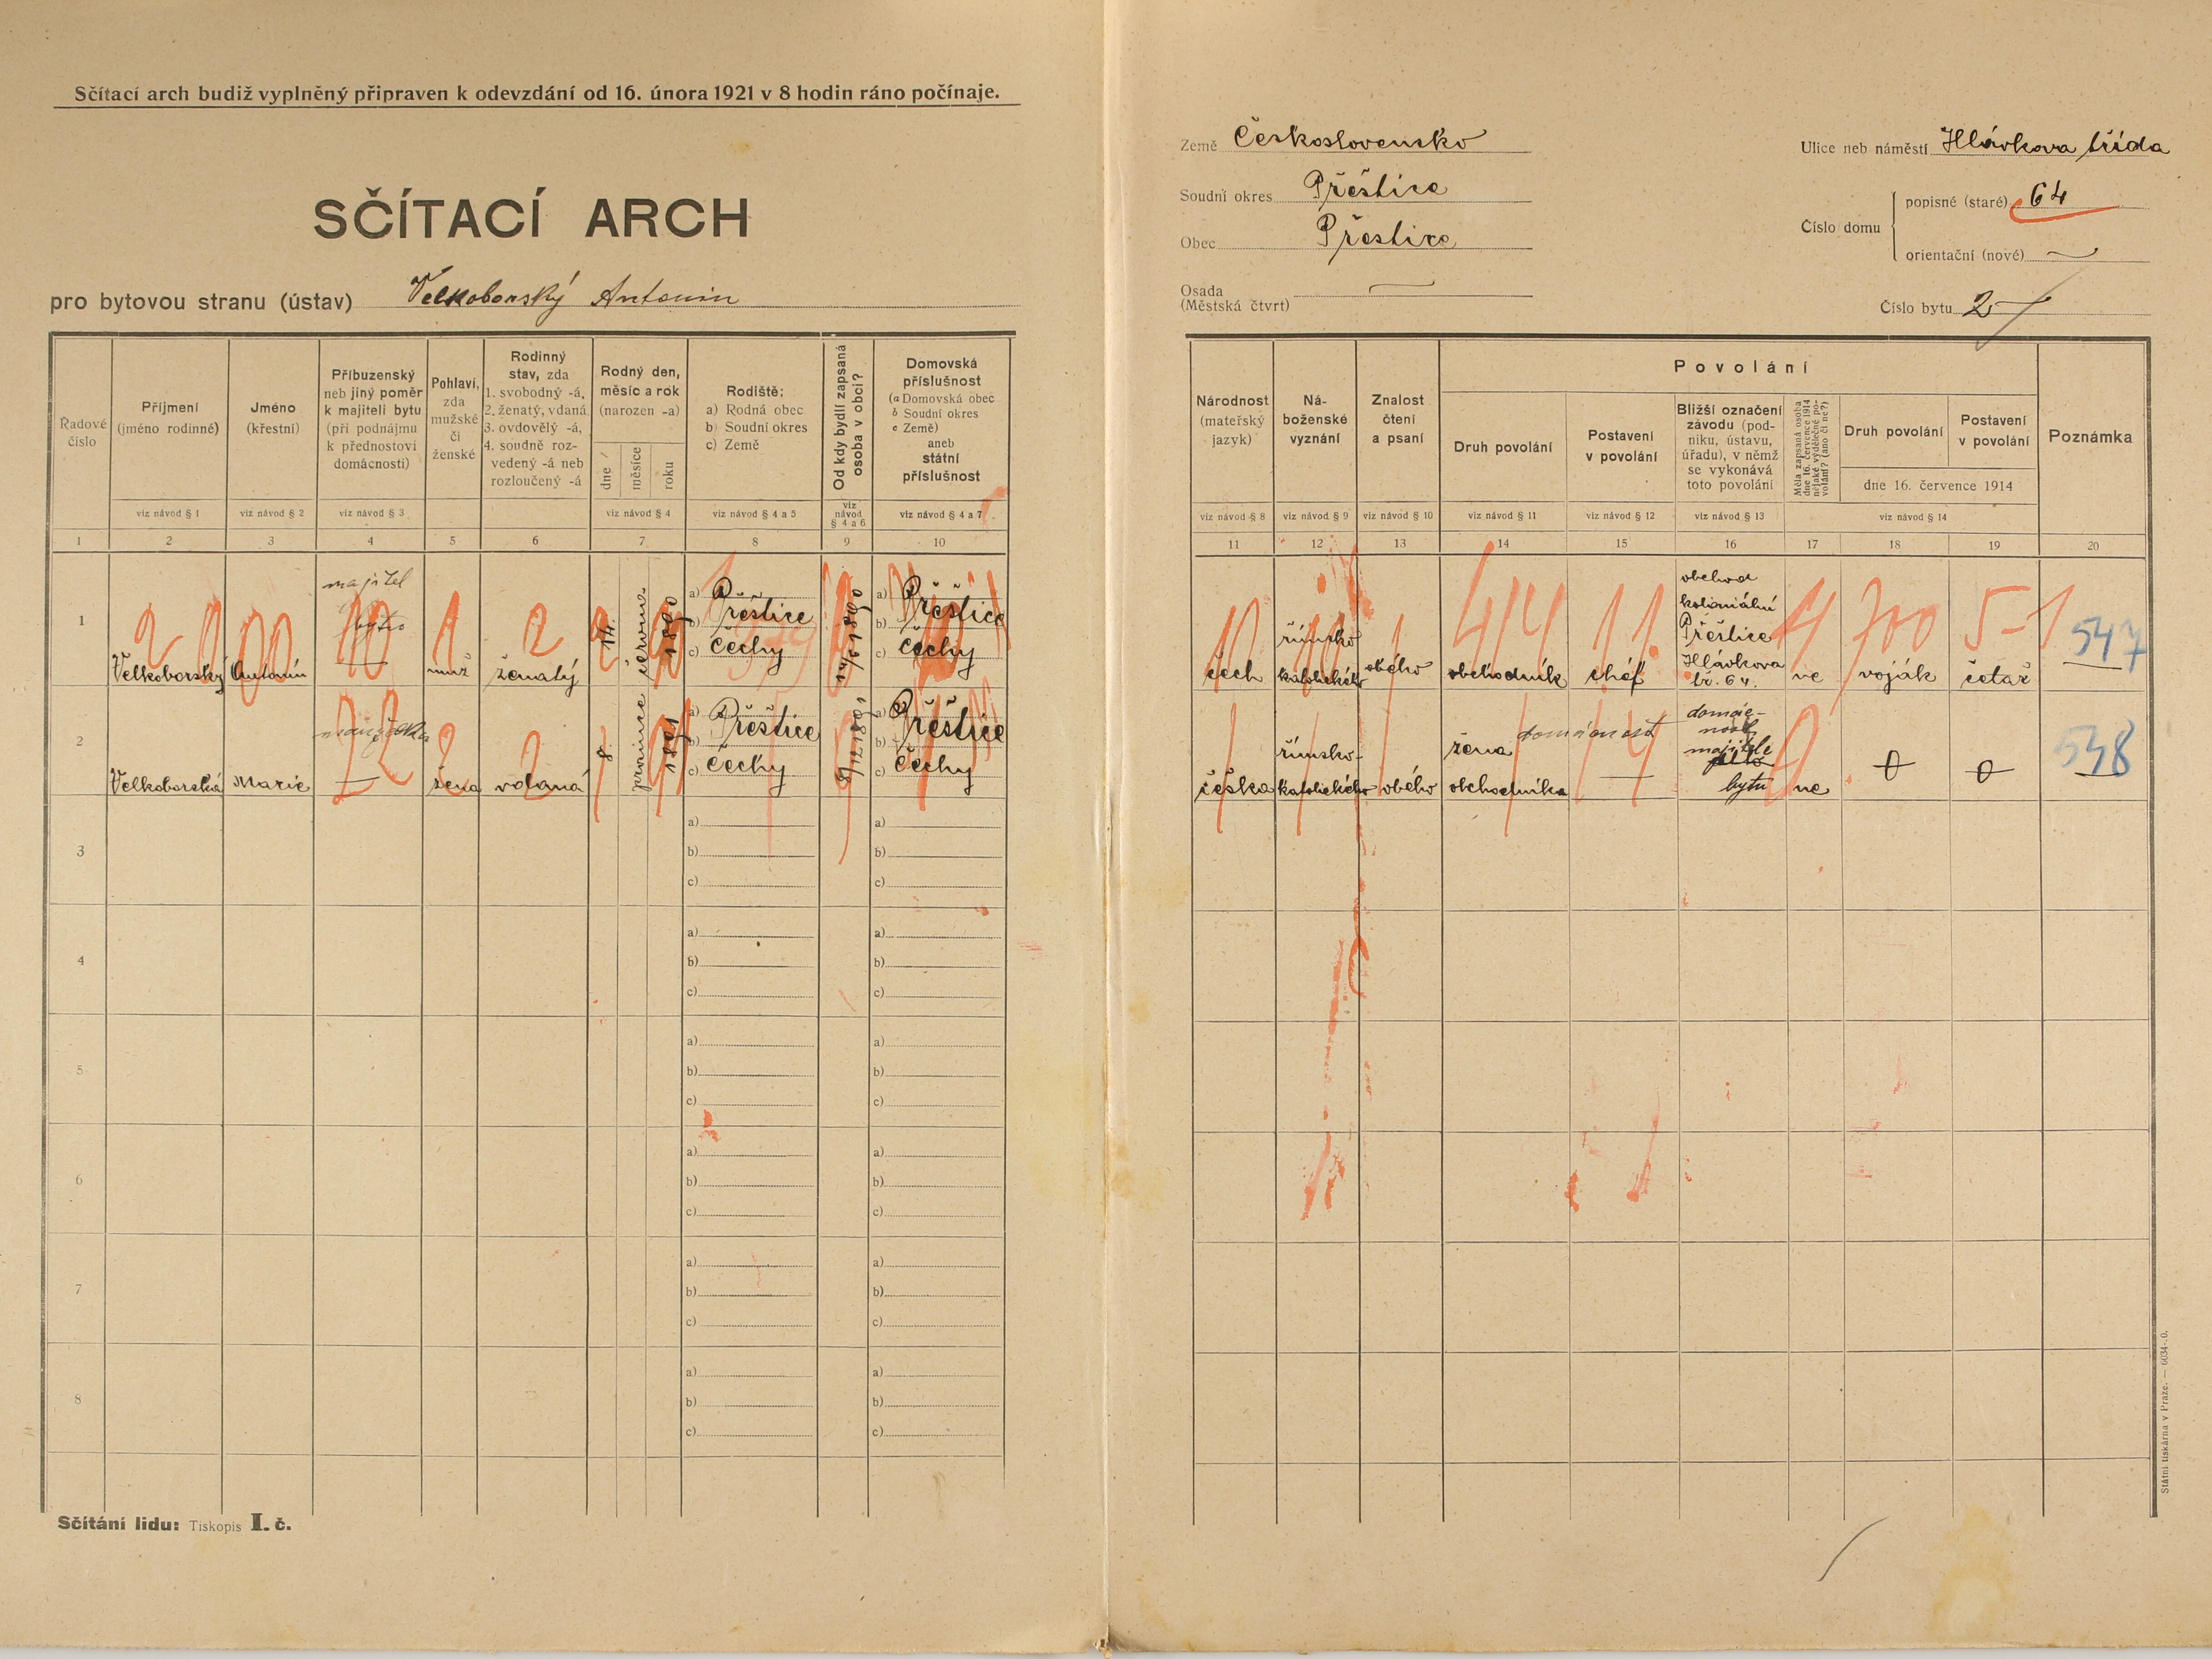 Sčítací arch budiž vyplněný připraven k odevzdání od 16. února 1921 v 8 hodin ráno počínaje.
SČÍTACÍ ARCH
pro bytovou stranu (ústav) Velkoborský Antonin
Země Československo
Soudní okres Přeštice
Obec Přeštice
Osada
(Městská čtvrť)
Ulice neb náměstí Hlávkova třída
Číslo domu
popisné (staré) 64
orientační (nové)
Číslo bytu 2
Řadové
číslo
Příjmení
(jméno rodinné)
Jméno
(křestní)
Příbuzenský
neb jiný poměr
k majiteli bytu
(při podnájmu
k přednostovi
domácnosti)
Pohlaví,
zda
mužské
či
ženské
Rodinný
stav, zda
1. svobodný -á,
2. ženatý, vdaná
3. ovdovělý -á,
4. soudně roz-
vedený -á neb
rozloučený -á
Rodný den,
měsíc a rok
(narozen -a)
dne
měsíce
roku
Rodiště:
a) Rodná obec
b) Soudní okres
c) Země
Od kdy bydlí zapsaná
osoba v obci?
Domovská
příslušnost
(a Domovská obec
b Soudní okres
c Země)
aneb
státní
příslušnost
viz návod § 1
viz návod § 2
viz návod § 3
viz návod § 4
viz návod § 4 a 5
viz
návod
§ 4 a 6
viz návod § 4 a 7
1 2 3 4 5 6 7 8 9 10
Národnost
(mateřský
jazyk)
Ná-
boženské
vyznání
Znalost
čtení
a psaní
Povolání
Druh povolání
Postavení
v povolání
Bližší označení
závodu (pod-
niku, ústavu,
úřadu), v němž
se vykonává
toto povolání
Měla zapsaná osoba
dne 16. července 1914
nějaké výdělečné po-
volání? (ano či ne?)
Druh povolání
Postavení
v povolání
dne 16. července 1914
Poznámka
viz návod § 8
viz návod § 9
viz návod § 10
viz návod § 11
viz návod § 12
viz návod § 13
viz návod § 14
11 12 13 14 15 16 17 18 19 20
1
Velkoborský
Antonín
majitel
bytu
muž
ženatý
14.
června
1890
a) Přeštice
b)
c) Čechy
14/6 1890
a) Přeštice
b)
c) Čechy
čech
římsko
katolického
obého
obchodník
chéf
obchod
koloniální
Přeštice
Hlávkova
tř. 64.
ne
voják
četař
547
2
Velkoborská
Marie
manželka
žena
vdaná
8
prosince
1891
a) Přeštice
b)
c) Čechy
8/12 1891
a) Přeštice
b)
c) Čechy
češka
římsko-
katolického
obého
žena
obchodníka
domácnost
domác-
nost
majitele
bytu
ne
0
0
548
3
a)
b)
c)
a)
b)
c)
4
a)
b)
c)
a)
b)
c)
5
a)
b)
c)
a)
b)
c)
6
a)
b)
c)
a)
b)
c)
7
a)
b)
c)
a)
b)
c)
8
a)
b)
c)
a)
b)
c)
Sčítání lidu: Tiskopis I. č.
Státní tiskárna v Praze. — 6034-.0.